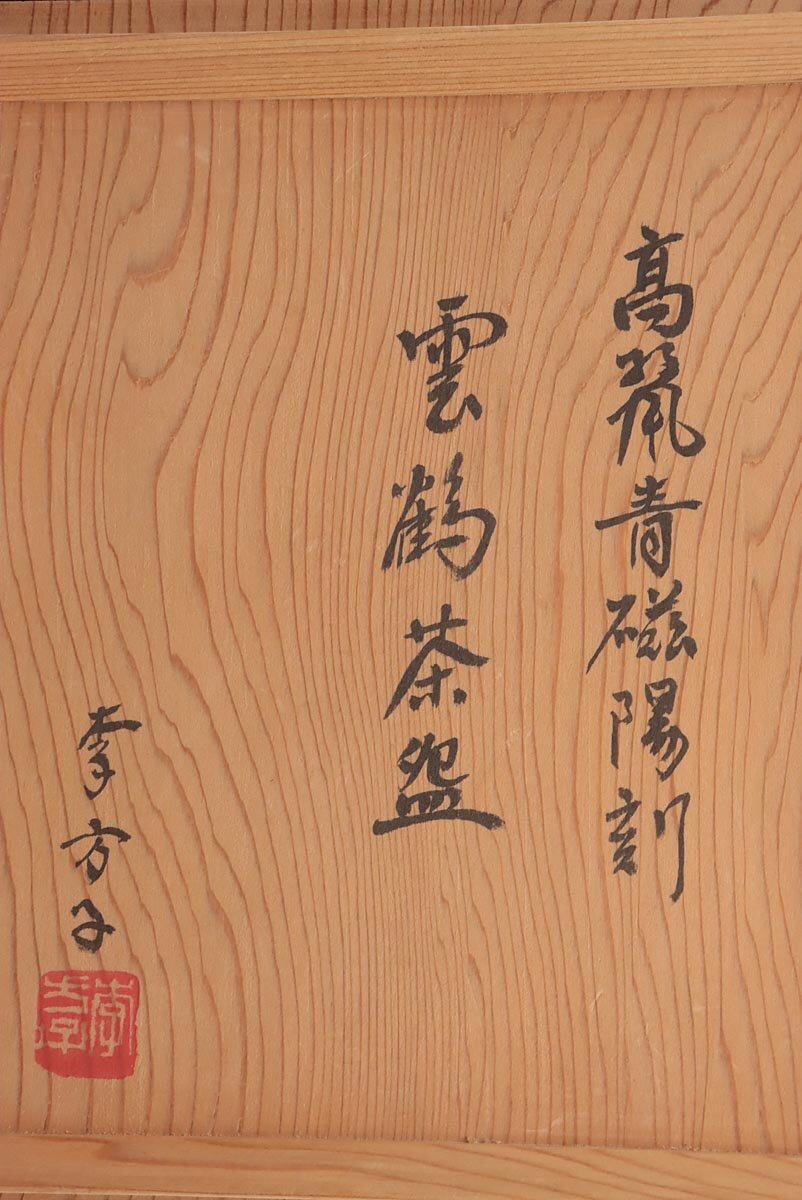 高麗青磁陽刻
雲鶴茶盌
李方子